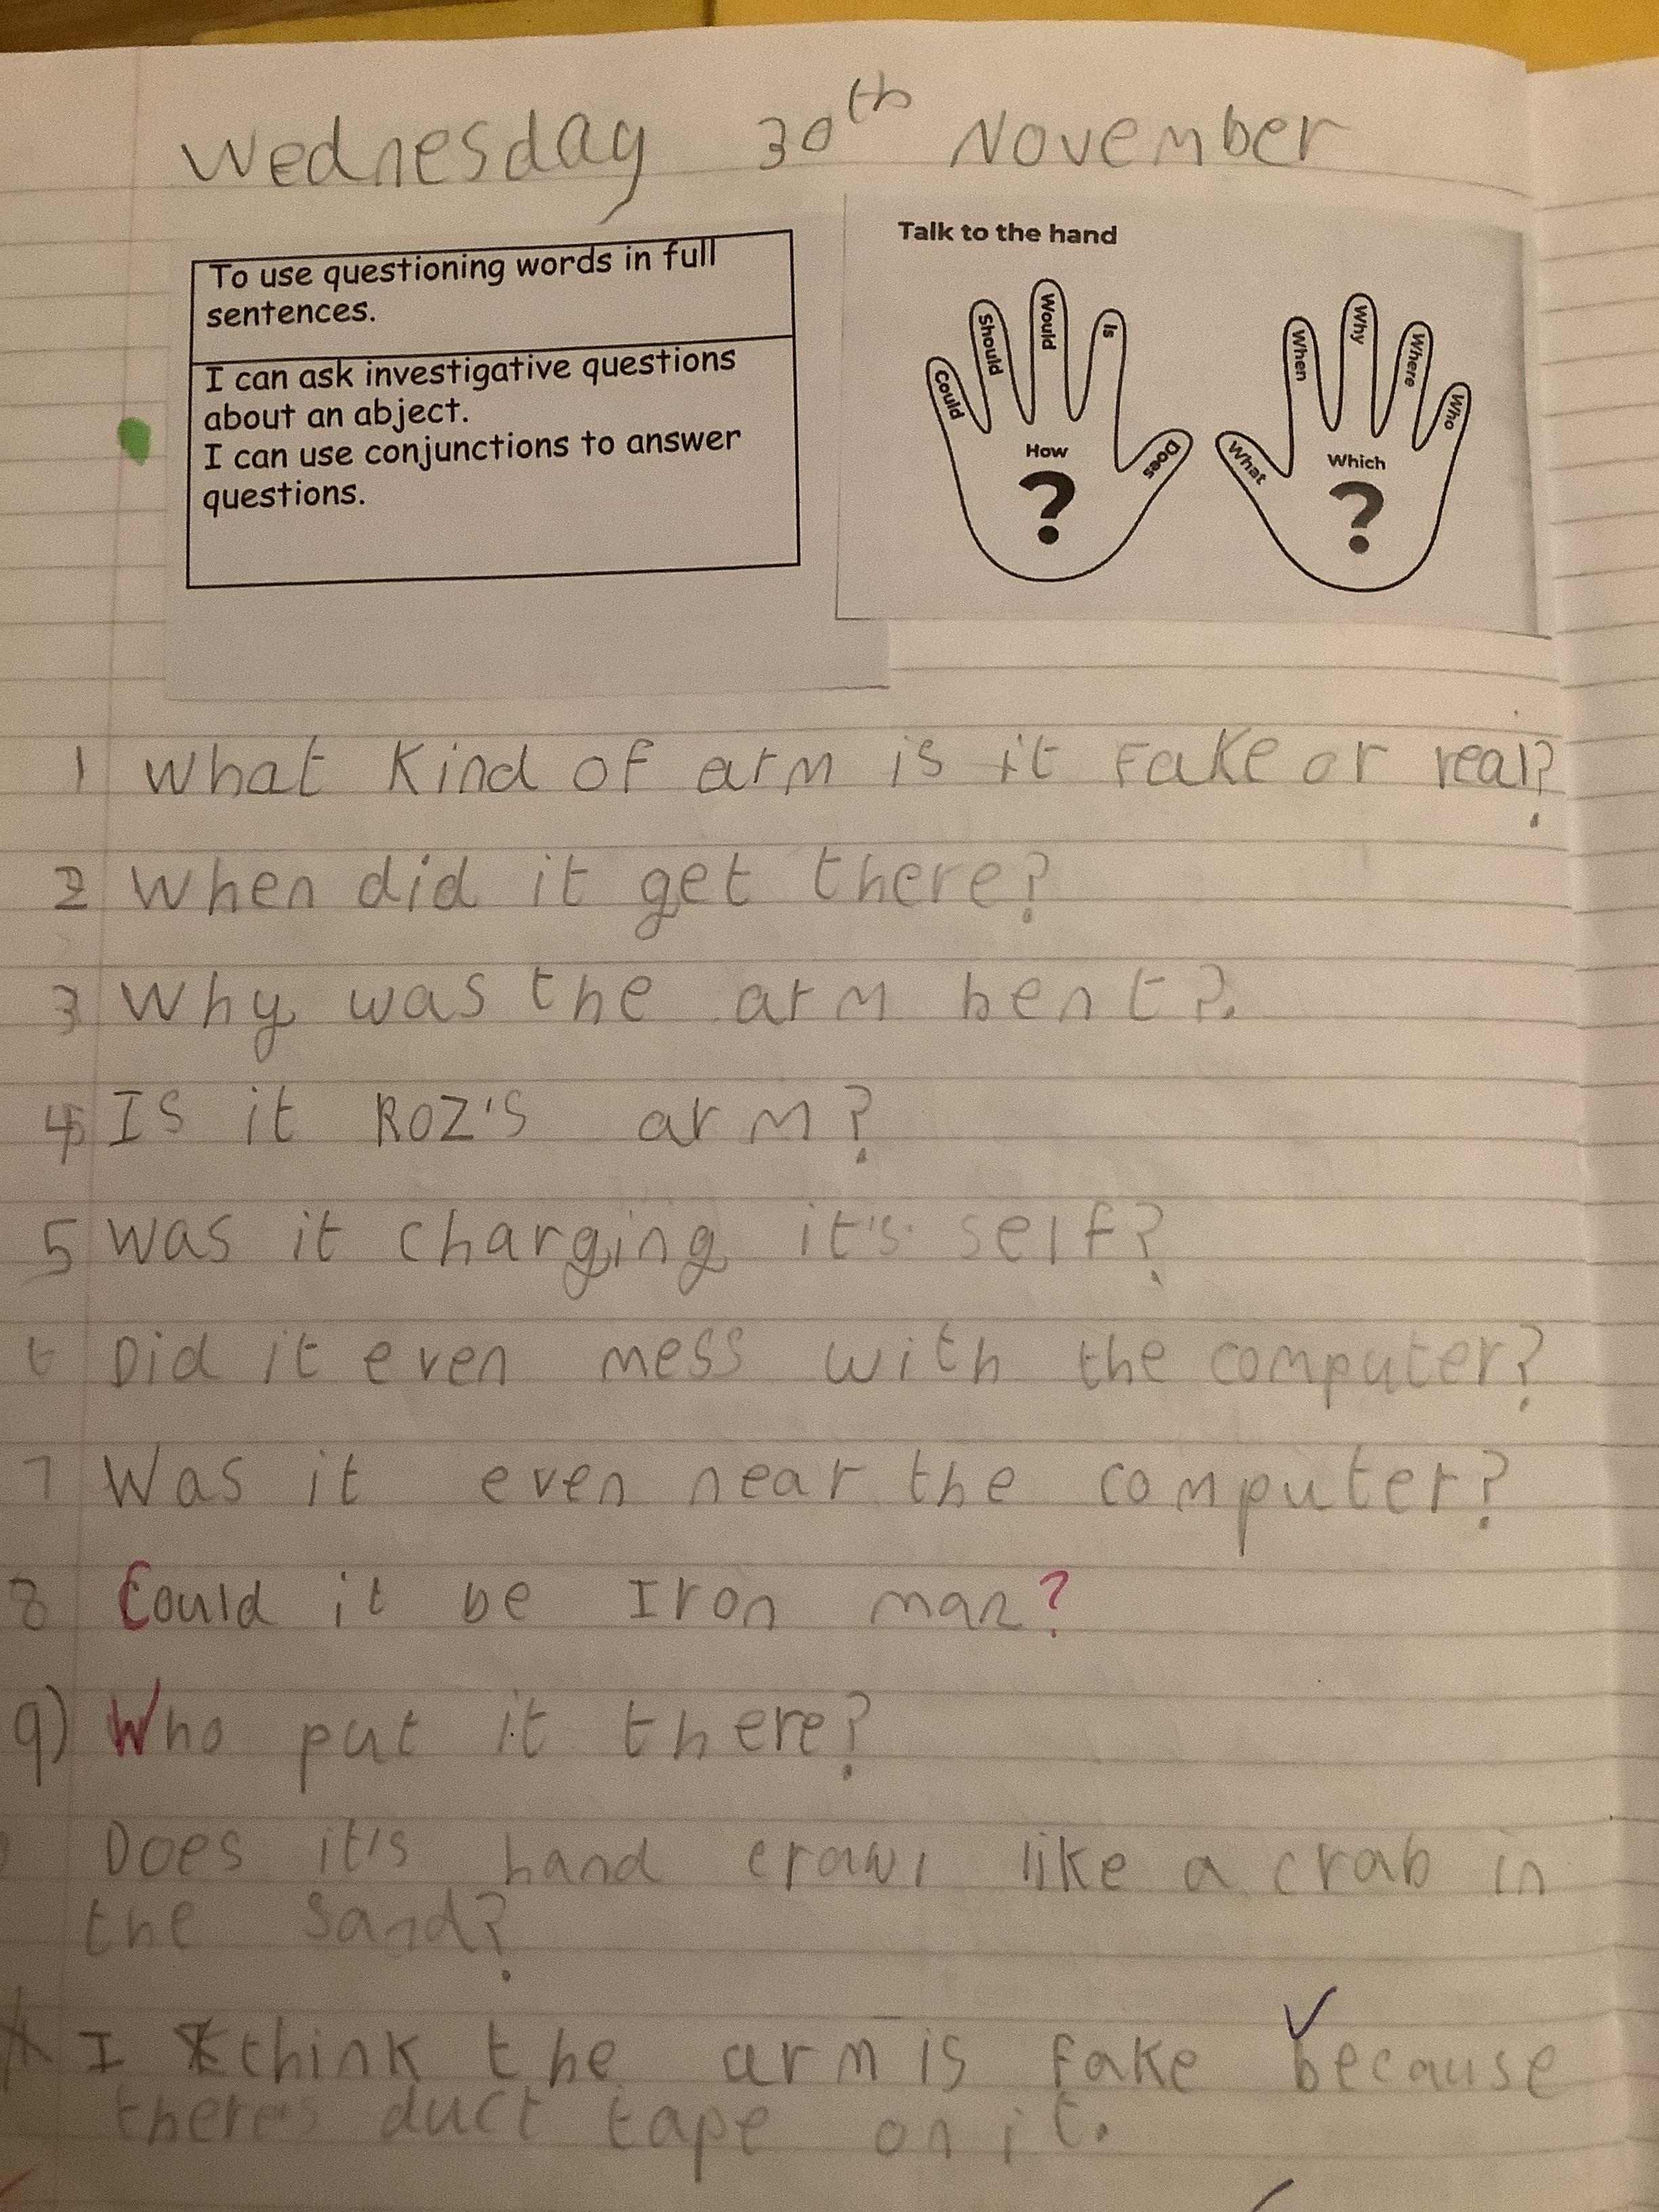 Wednesday 30th November
To use questioning words in full
sentences.
I can ask investigative questions
about an abject.
I can use conjunctions to answer
questions.
Talk to the hand
Could
Should
Would
Is
Does
How
?
What
When
Why
Where
Who
Which
?
1 What kind of arm is it fake or real?
2 When did it get there?
3 Why was the arm bent?.
4 Is it Roz's arm?
5 Was it charging it's self?
6 Did it even mess with the computer?
7 Was it even near the computer?
8 Could it be Iron man?
9) Who put it there?
Does it's hand crawl like a crab in
the sand?
I think the arm is fake because
theres duct tape on it.